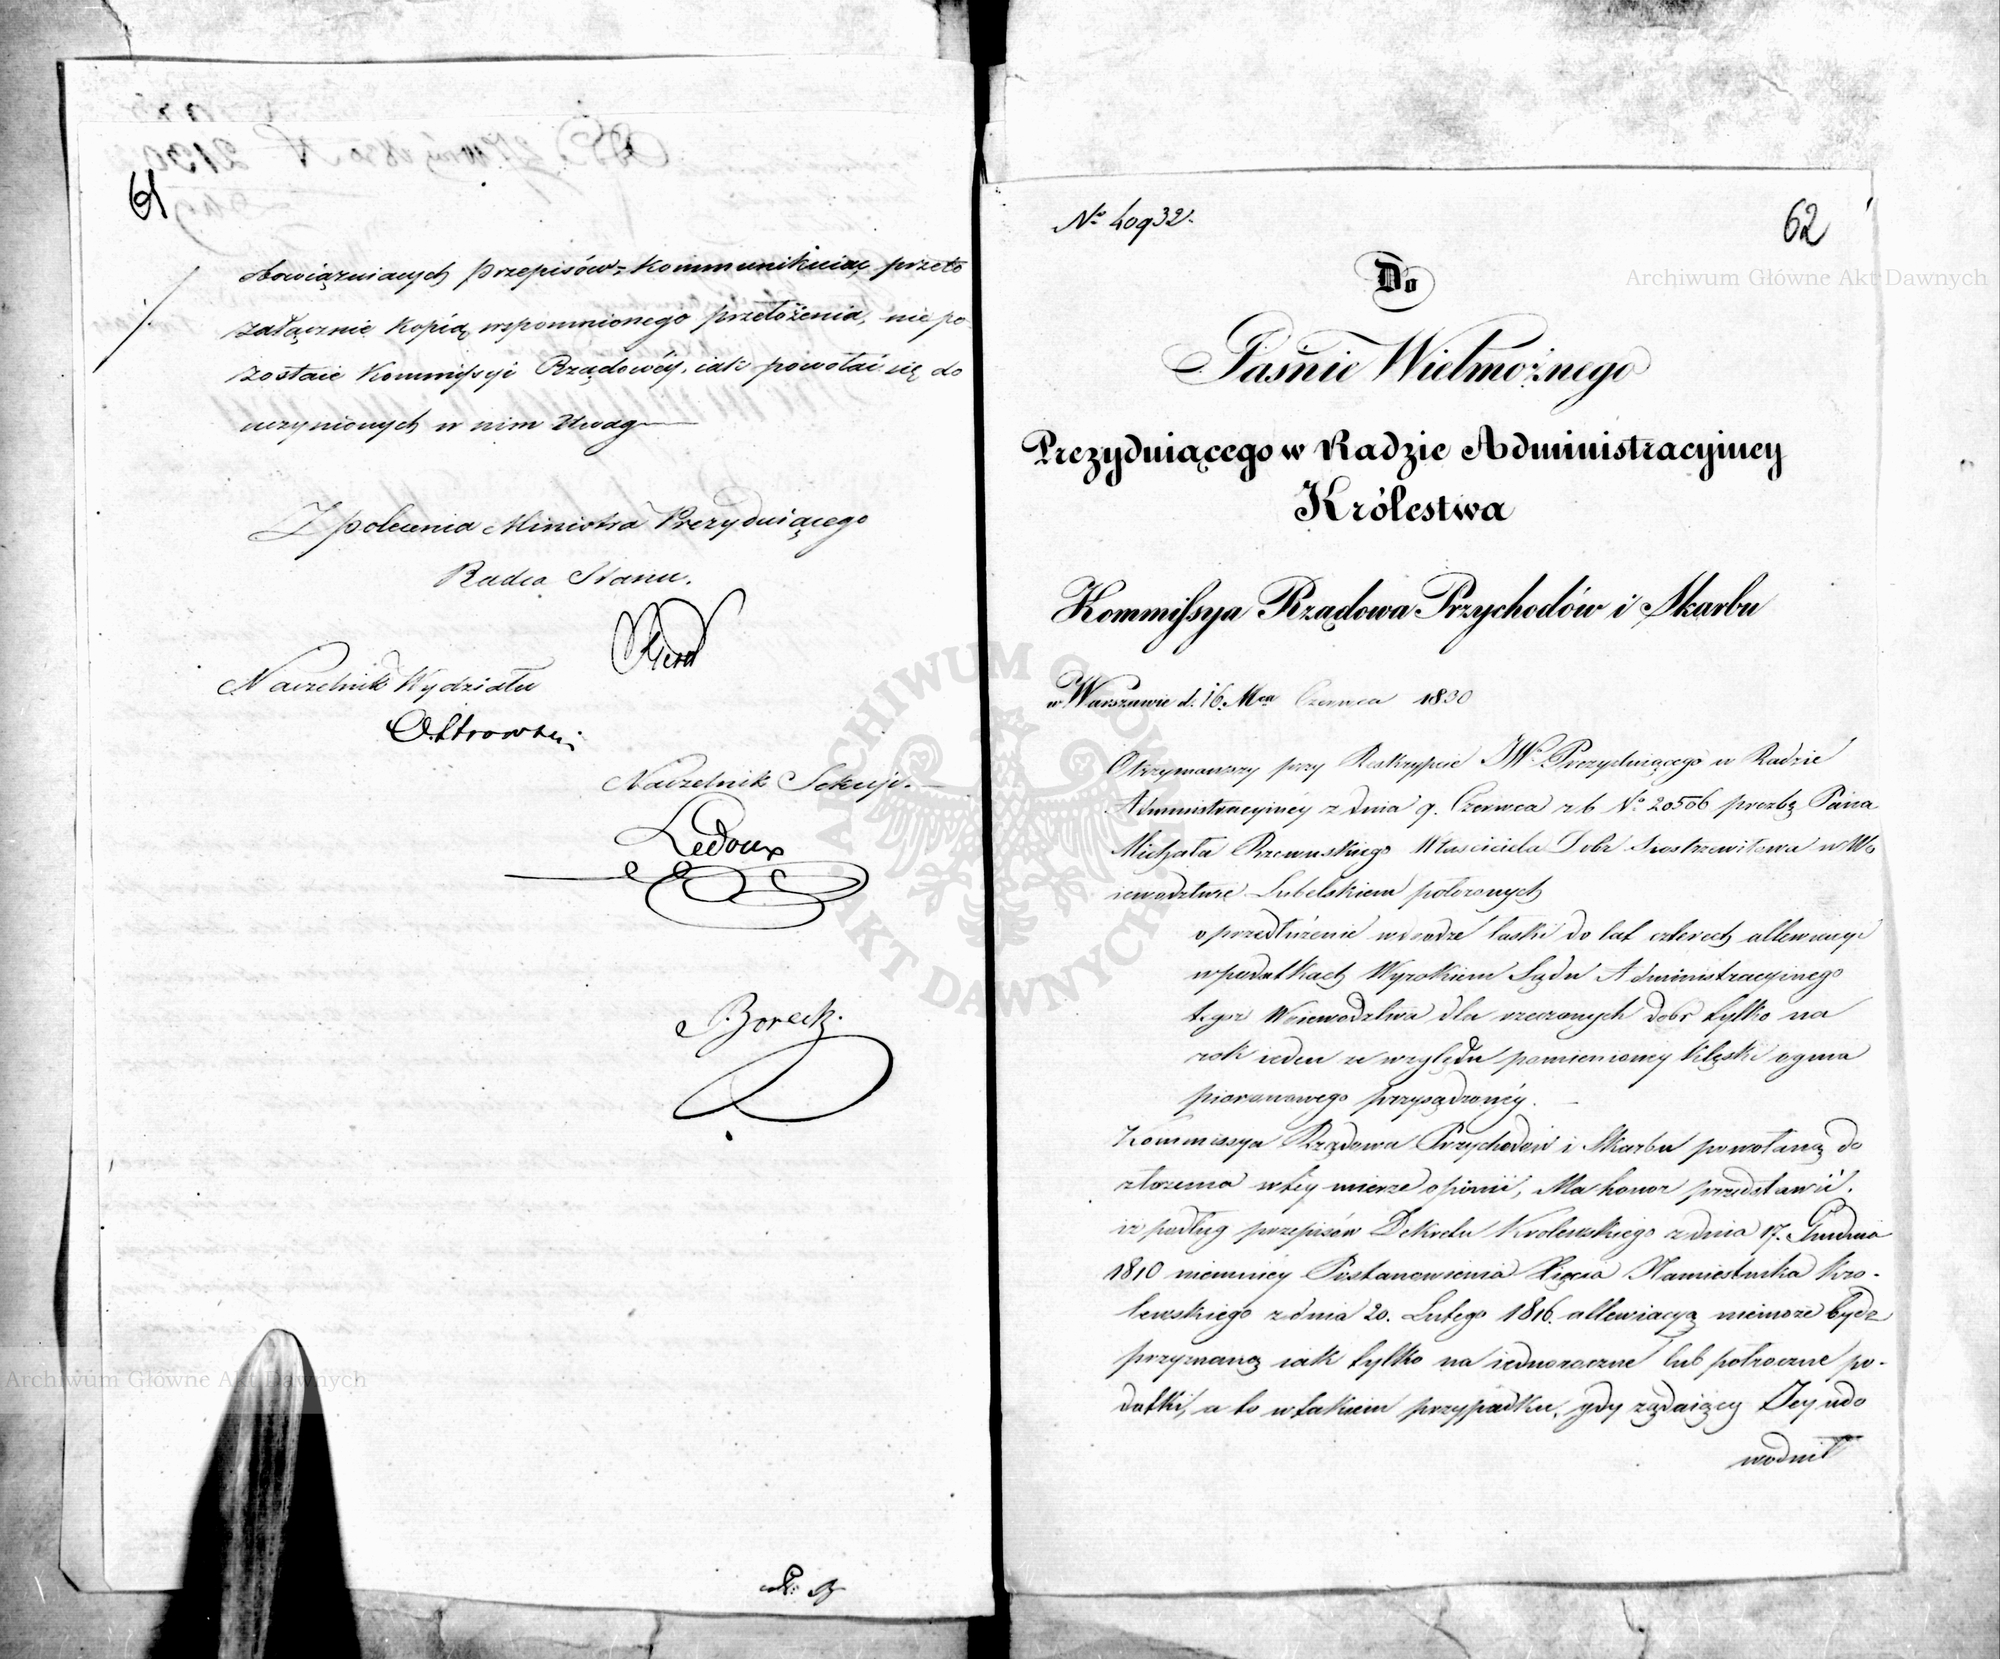 61
obowiązuiących przepisów, kommunikuiąc przeto
załącznie kopią wspomnionego przełożenia, nie po
zostaie Kommissyi Rządowéy, iak powołać się do
uczynionych w nim Uwag
Z polecenia Ministra Prezyduiącego
Radca Stanu.
Naczelnik Wydziału
Ostrowski
Naczelnik Sekcyi.
Ledoux
62
No 40932.
Do
Jaśnie Wielmożnego
Prezyduiącego w Radzie Administracyiney
Królestwa
Kommissya Rządowa Przychodów i Skarbu
w Warszawie d. 16. Mca Czerwca 1830
Otrzymawszy przy Reskrypcie JW. Prezyduiącego w Radzie
Administracyinéy z dnia 9. Czerwca r b No 20506 prozbę Pana
Michała Rzewuskiego Właściciela Dobr Siostrzewitowa w Wo
iewodztwie Lubelskiem położonych
o przedłużenie w drodze łaski do lat czterech allewiacyi
w podatkach Wyrokiem Sądu Administracyinego
tegoż Woiewodztwa dla rzeczonych dobr tylko na
rok ieden ze względu pomienioney klęski ognia
piorunowego przysądzonéy.
Kommissya Rządowa Przychodów i Skarbu powołaną do
złożenia w tey mierze opinii, Ma honor przedstawić,
iż podług przepisów Dekretu Krolewskiego z dnia 17. Grudnia
1810 niemniey Postanowienia Xięcia Namiestnika Kro-
lewskiego z dnia 20. Lutego 1816. allewiacyą niemoże bydź
przyznaną iak tylko na iednoroczne lub połroczne po-
datki, a to w takiem przypadku, gdy żądaiący Jey udo
wodnił
Archiwum Główne Akt Dawnych
Archiwum Główne Akt Dawnych
ARCHIWUM GŁÓWNE AKT DAWNYCH